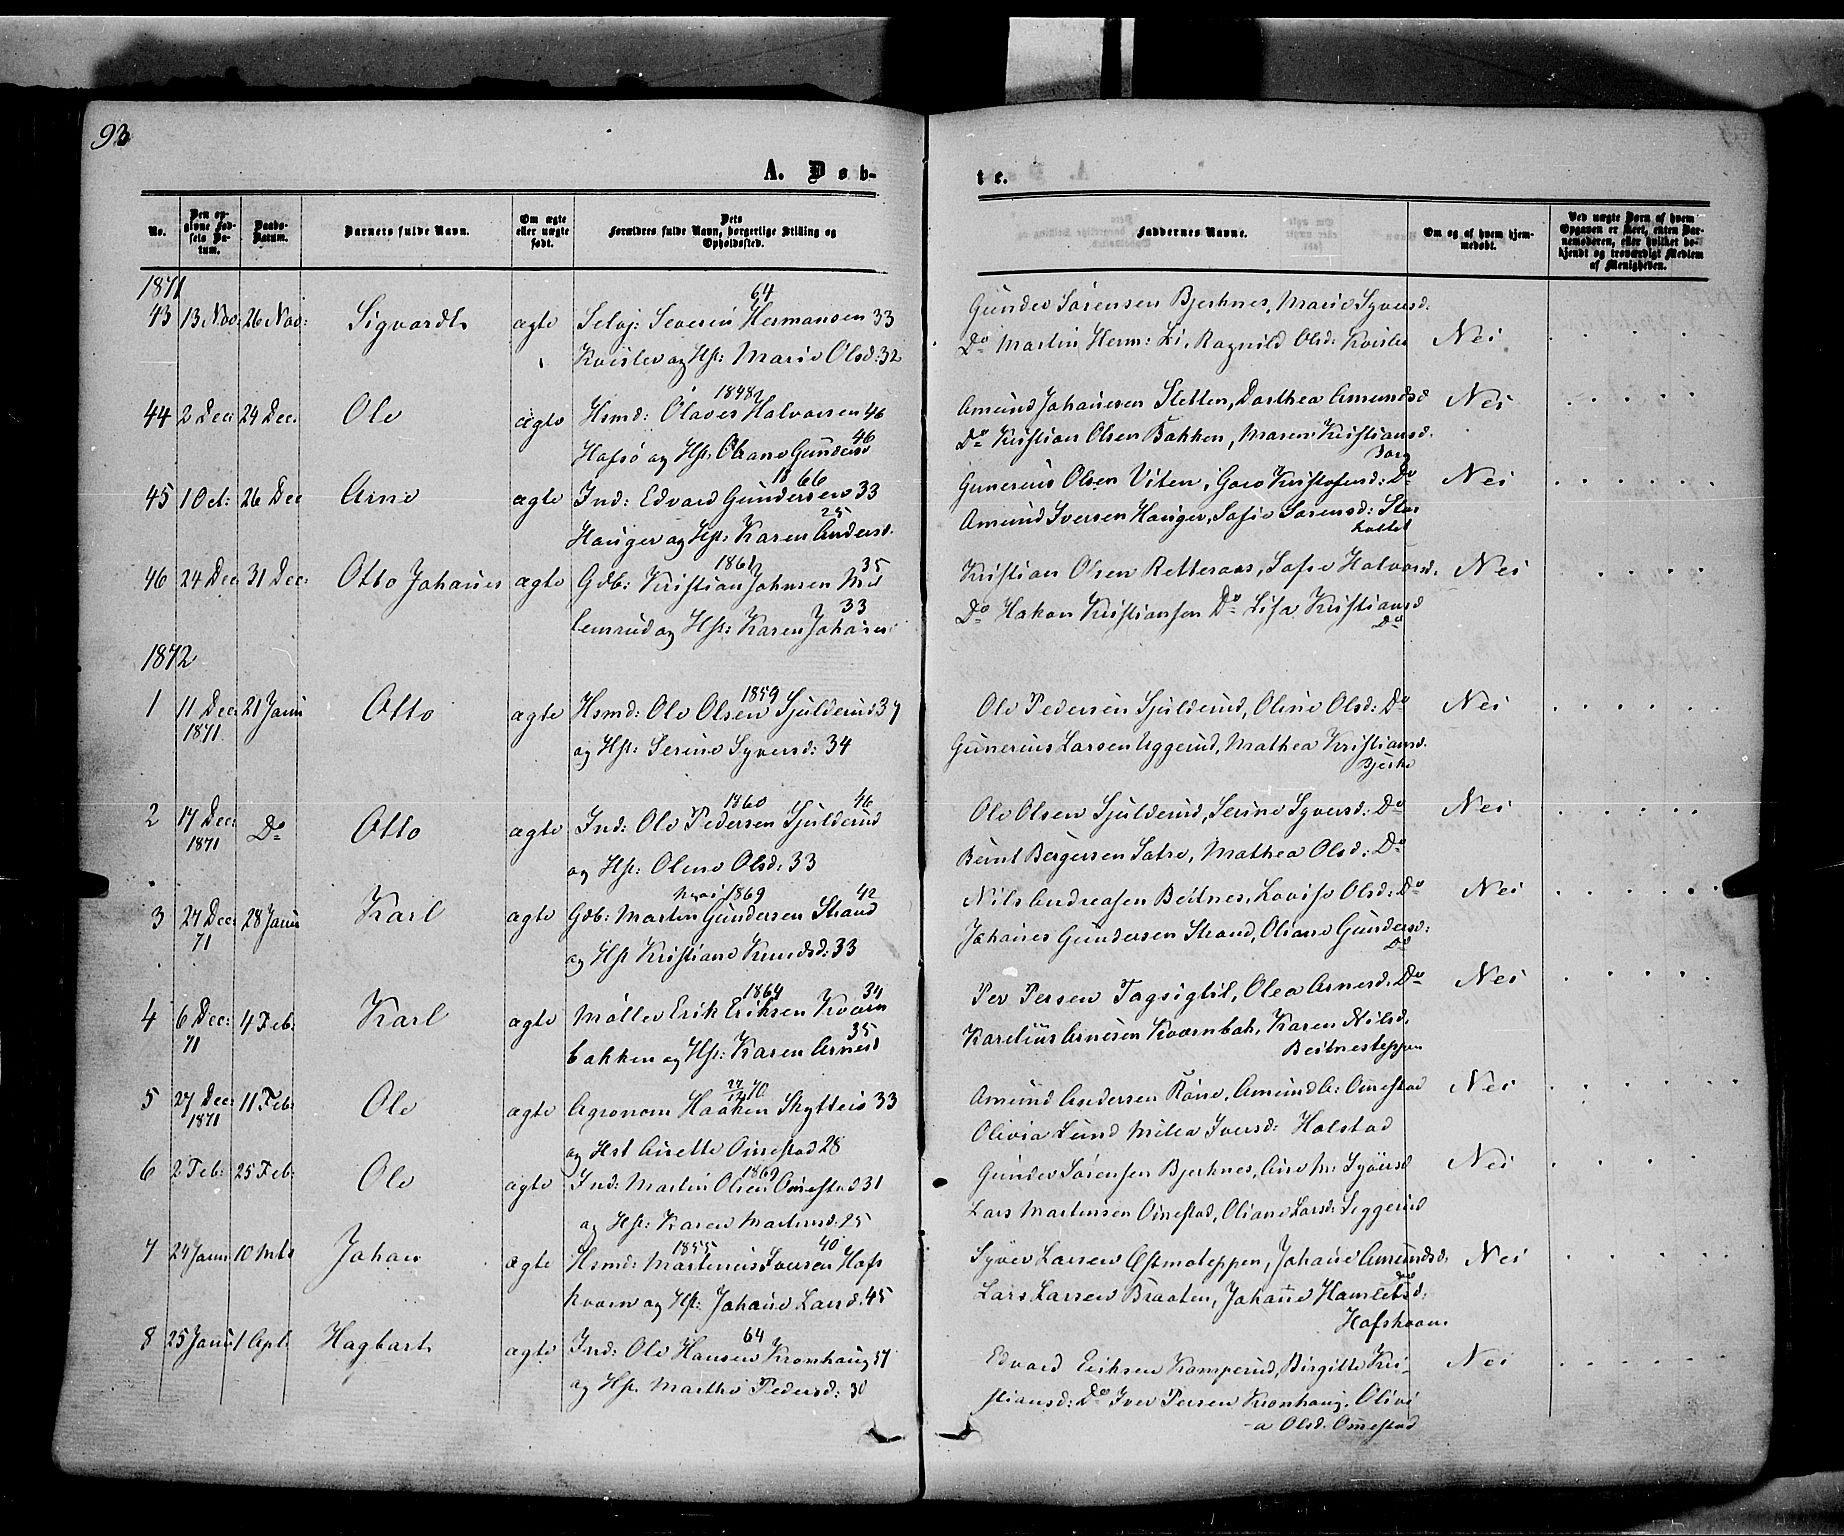 93
A. Døb-
te.
No.
Den opgivne Fødsels Datum.
Daabs-Datum.
Barnets fulde Navn.
Om ægte eller uægte født.
Dets Forældres fulde Navn, borgerlige Stilling og Opholdssted.
Faddernes Navne.
Om og af hvem hjemmedøbt.
Ved uægte Børn af hvem Opgaven er skeet, enten Barnemoderen, eller hvilket bekjendt og troværdigt Medlem af Menigheden.
1871
64
43 13 Nov: 26 Nov: Sigvardt ægte Selvj: Severin Hermansen 33 Gunder Sörensen Bjerknes, Marie Syversd:
Kvisler og Hst: Marie Olsd: 32 Do Martin Herm: Li, Ragnild Olsd: Kvisler Nei
1848
44 2 Dec: 24 Dec: Ole ægte Hsmd: Olaves Halvorsen 46 Amund Johannesen Sletten, Dorthea Amundsd Nei
46
og Hst: Oleane Gundersd Do Kristian Olsen Bakken, Maren Kristiansd.
1866
45 1 Oct: 26 Dec Arne ægte Ind: Edvard Gundersen 33 Gunerius Olsen Viten, Kristofersd: Do Nei
25
Hauger og Hst: Karen Andersd. Amund Iversen Hauger, Sofie Sörensd:
46 24 Dec 31 Dec: Otto Johannes ægte Gdb: Kristian Johnsen 35 Kristian Olsen Retteraas, Sofie Halvorsd. Nei
33
og Hst: Karen Johannes Do Hakon Kristiansen Do Lise Kristiansd
Do
1872
1859
1 11 Dec: 21 Janu Otto ægte Hsmd: Ole Olsen Sjulderud 37 Ole Pedersen Sjulderud, Oline Olsd: Do Nei
1871
og Hst: Serine Syversd: 34 Gunerius Larsen Uggerud, Mathea Kristiansd.
Bjerke
1860 46
2 17 Dec: Do Otto ægte Ind: Ole Pedersen Sjulderud Ole Olsen Sjulderud, Serine Syversd: Do Nei
1871
og Hst: Oline Olsd: 33 Bernt Bergersen Satre, Mathea Olsd: Do
1869 42
3 27 Dec: 28 Janu Karl ægte Gdb: Martin Gundersen Strand Nils Andreasen Beitnes, Lovise Olsd: Do Nei
71
og Hst Kristiane Knudsd: 33 Johanes Gundersen Strand, Oliane Gundersd:
Do
1864 34
4 6 Dec: 4 Feb: Karl ægte Möller Erik Eriksen Kværn Per Persen Tagsigtil, Olea Arnesd: Do Nei
71
35
bakken og Hst: Karen Arnesd Karelius Arnesen Kværnbak, Karen Nilsd.
Beitnesteppen
27/12 70
5 27 Dec: 11 Feb: Ole ægte Agronom Haaken Skytteis 33 Amund Andersen Röise, Amund A: Omestad Nei
1871
og Hst Anette Omestad 28 Olivia Lund Milea Iversd: Holstad
1869
6 2 Feb: 25 Feb: Ole ægte Ind: Martin Olsen Omestad 31 Gunder Sörensen Bjerknes, Ane M: Syversd Nei
og Hst: Karen Martinsd: 25 Lars Martinsen Omestad, Oliane Larsd: Seggerud
1855 40
7 24 Janu 10 Mts Johan ægte Hsmd: Martinius Iversen Hofs Syver Larsen Östmoteppen, Johane Amundsd. Nei
kværn og Hst: Johane Larsd. 45 Lars Larsen Braaten, Johane
Hofskværn
64
8 25 Janu 1 Apl. Hagbart ægte Ind: Ole Hansen Kronhaug 37 Edvard Eriksen Kamperud, Birgitte Kri- Nei
og Hst. Marthe Pedersd: 30 stiansd: Do Iver Persen Kronhaug, Olivi
-a Olsd. Omestad